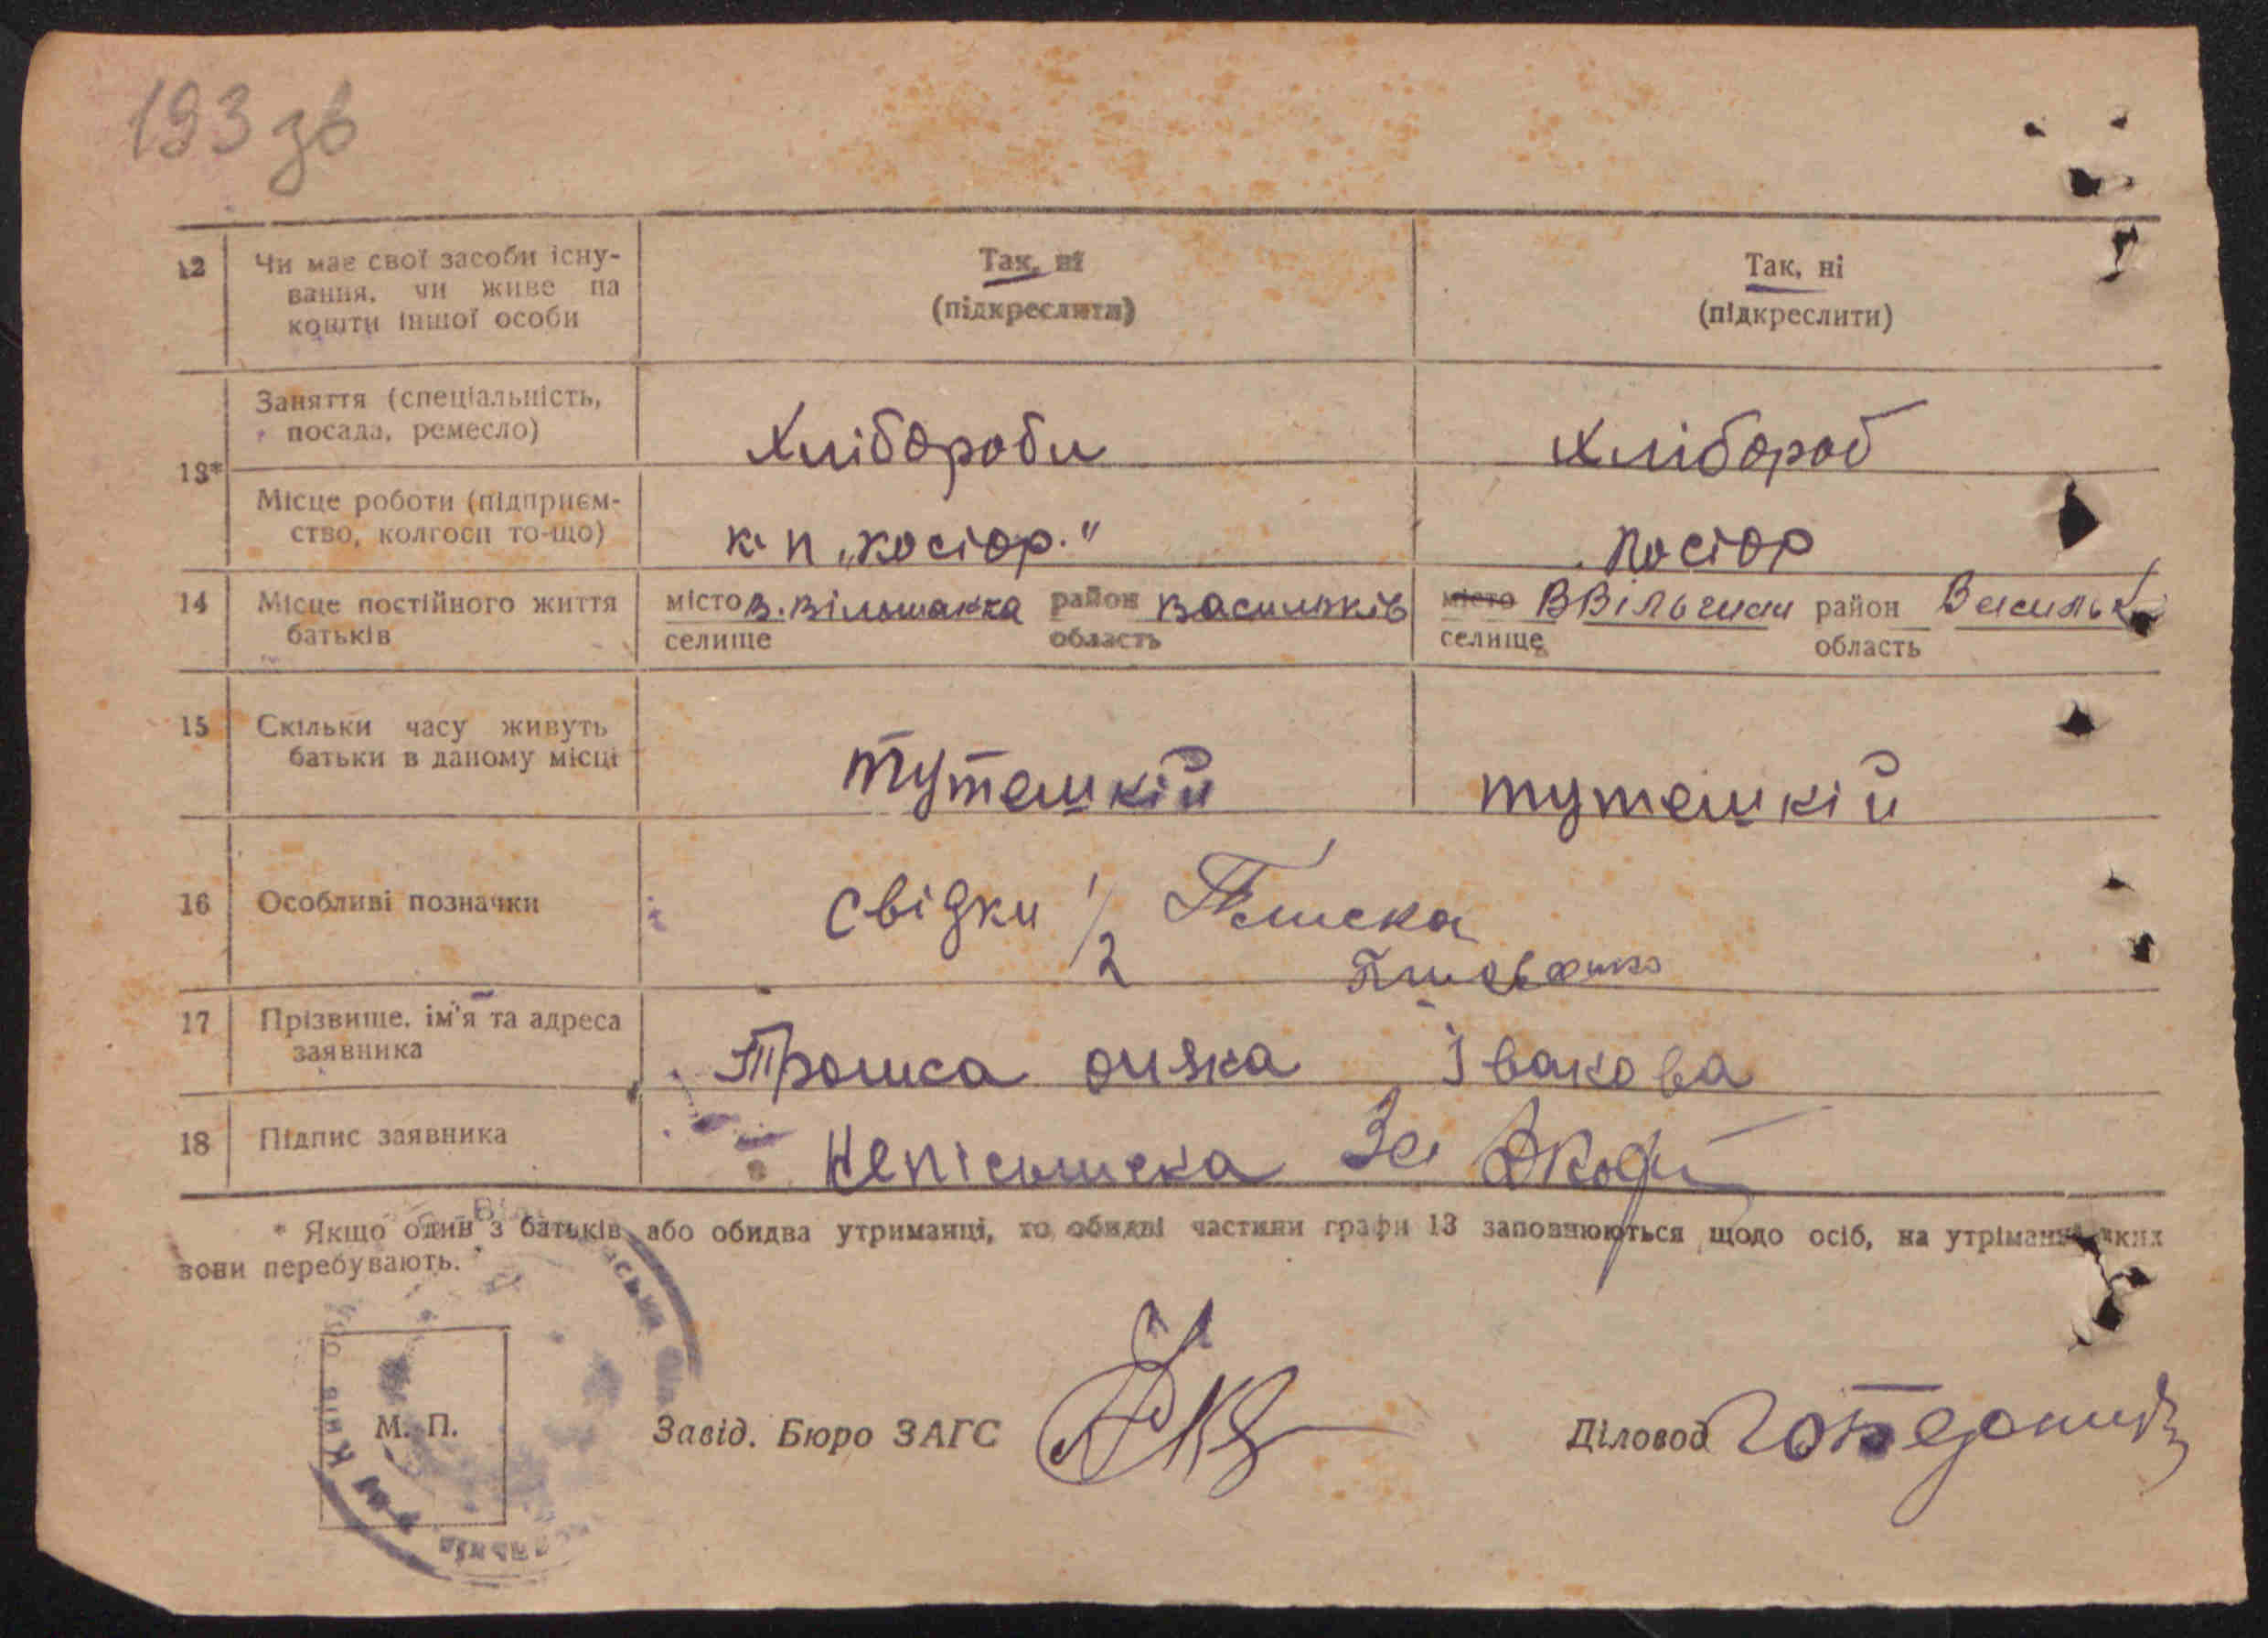 193 зв
12 Чи має свої засоби існу- Так, ні Так, ні
вання, чи живе на (підкреслити) (підкреслити)
кошти іншої особи
Заняття (спеціальність, Хлібороби Хлібороб
посада, ремесло)
13*
Місце роботи (підприєм-
ство, колгосп то-що) к п „косіор." косіор
14 Місце постійного життя місто В. Вільшанка район Васильків місто В Вільшан район Васильк
батьків селище область селище область
15 Скільки часу живуть
батьки в даному місці тутешній тутешній
16 Особливі позначки свідки 1/2
17 Прізвище, ім'я та адреса
заявника Івакова
18 Підпис заявника Непісьмена За
* Якщо один з батьків або обидва утриманці, то обидві частини графи 13 заповнюються щодо осіб, на утріманні яких
вони перебувають.
М. П. Завід. Бюро ЗАГС Діловод